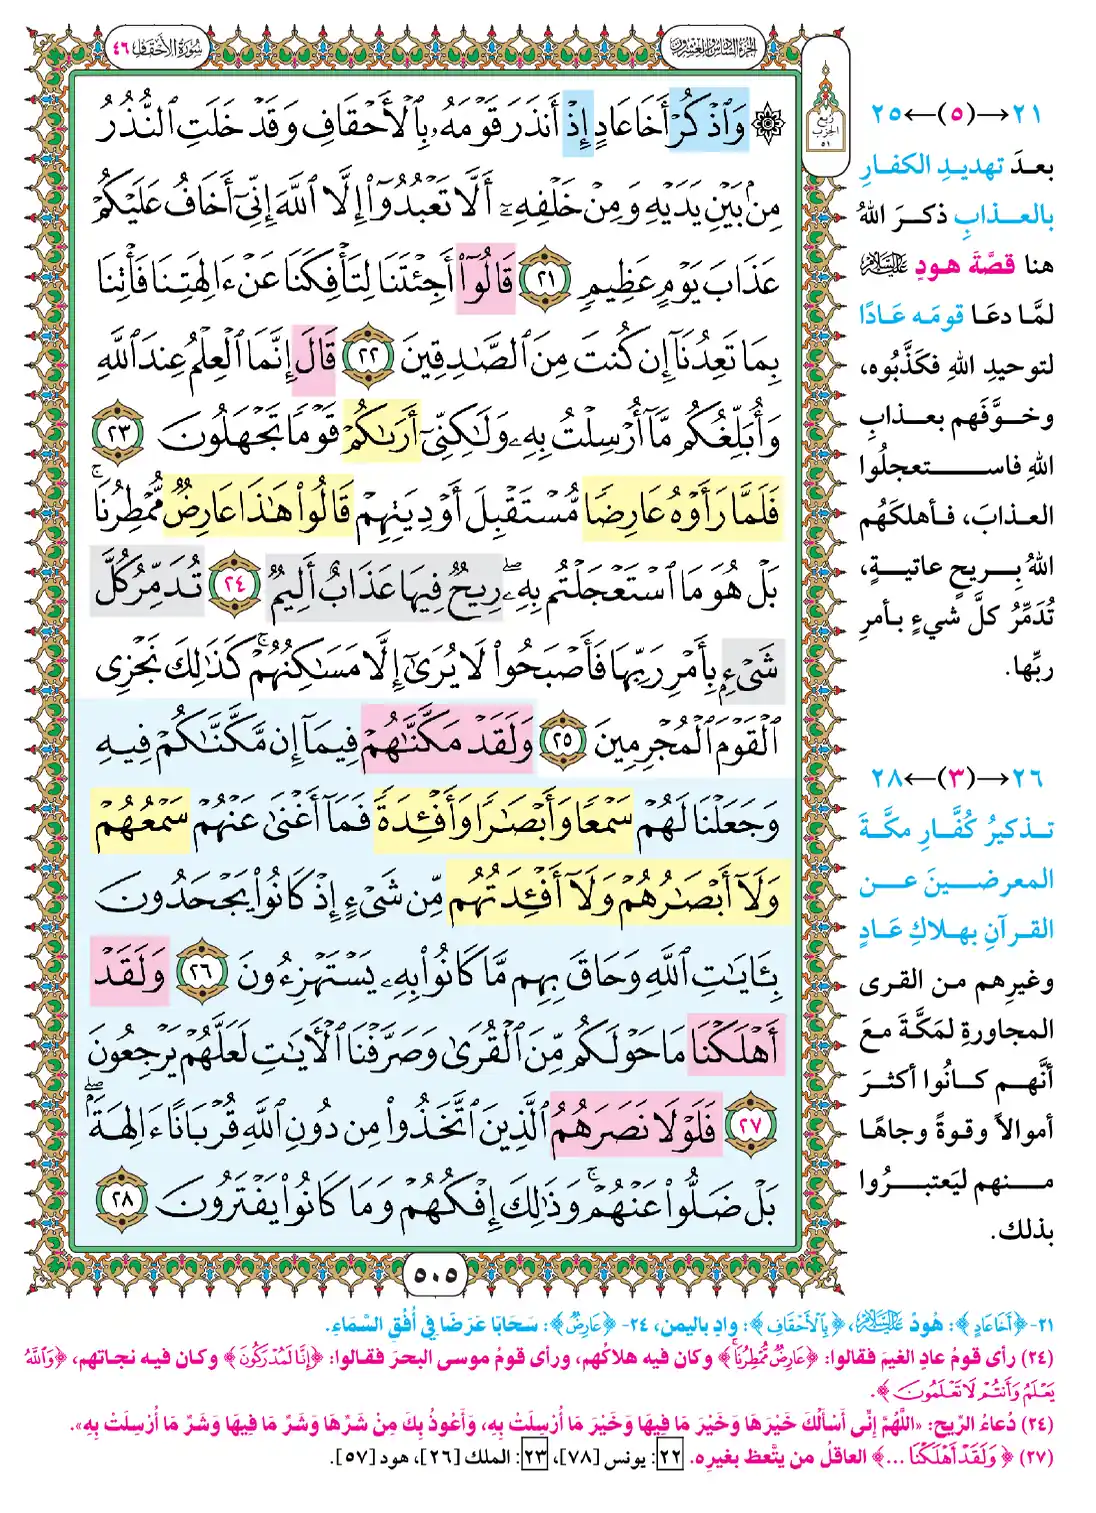 سُورَةُ الأَحْقَافِ ٤٦
الجُزْءُ السَّادِسُ وَالعِشْرُونَ
رُبع
الحِزب
٥١
۞ وَٱذْكُرْ أَخَا عَادٍ إِذْ أَنذَرَ قَوْمَهُۥ بِٱلْأَحْقَافِ وَقَدْ خَلَتِ ٱلنُّذُرُ
مِنۢ بَيْنِ يَدَيْهِ وَمِنْ خَلْفِهِۦٓ أَلَّا تَعْبُدُوٓا۟ إِلَّا ٱللَّهَ إِنِّىٓ أَخَافُ عَلَيْكُمْ
عَذَابَ يَوْمٍ عَظِيمٍ ٢١ قَالُوٓا۟ أَجِئْتَنَا لِتَأْفِكَنَا عَنْ ءَالِهَتِنَا فَأْتِنَا
بِمَا تَعِدُنَآ إِن كُنتَ مِنَ ٱلصَّـٰدِقِينَ ٢٢ قَالَ إِنَّمَا ٱلْعِلْمُ عِندَ ٱللَّهِ
وَأُبَلِّغُكُم مَّآ أُرْسِلْتُ بِهِۦ وَلَـٰكِنِّىٓ أَرَىٰكُمْ قَوْمًا تَجْهَلُونَ ٢٣
فَلَمَّا رَأَوْهُ عَارِضًا مُّسْتَقْبِلَ أَوْدِيَتِهِمْ قَالُوا۟ هَـٰذَا عَارِضٌ مُّمْطِرُنَا ۚ
بَلْ هُوَ مَا ٱسْتَعْجَلْتُم بِهِۦ ۖ رِيحٌ فِيهَا عَذَابٌ أَلِيمٌ ٢٤ تُدَمِّرُ كُلَّ
شَىْءٍۭ بِأَمْرِ رَبِّهَا فَأَصْبَحُوا۟ لَا يُرَىٰٓ إِلَّا مَسَـٰكِنُهُمْ ۚ كَذَٰلِكَ نَجْزِى
ٱلْقَوْمَ ٱلْمُجْرِمِينَ ٢٥ وَلَقَدْ مَكَّنَّـٰهُمْ فِيمَآ إِن مَّكَّنَّـٰكُمْ فِيهِ
وَجَعَلْنَا لَهُمْ سَمْعًا وَأَبْصَـٰرًا وَأَفْـِٔدَةً فَمَآ أَغْنَىٰ عَنْهُمْ سَمْعُهُمْ
وَلَآ أَبْصَـٰرُهُمْ وَلَآ أَفْـِٔدَتُهُم مِّن شَىْءٍ إِذْ كَانُوا۟ يَجْحَدُونَ
بِـَٔايَـٰتِ ٱللَّهِ وَحَاقَ بِهِم مَّا كَانُوا۟ بِهِۦ يَسْتَهْزِءُونَ ٢٦ وَلَقَدْ
أَهْلَكْنَا مَا حَوْلَكُم مِّنَ ٱلْقُرَىٰ وَصَرَّفْنَا ٱلْـَٔايَـٰتِ لَعَلَّهُمْ يَرْجِعُونَ
٢٧ فَلَوْلَا نَصَرَهُمُ ٱلَّذِينَ ٱتَّخَذُوا۟ مِن دُونِ ٱللَّهِ قُرْبَانًا ءَالِهَةًۢ ۖ
بَلْ ضَلُّوا۟ عَنْهُمْ ۚ وَذَٰلِكَ إِفْكُهُمْ وَمَا كَانُوا۟ يَفْتَرُونَ ٢٨
٥٠٥
٢١→(٥)←٢٥
بعدَ تهديدِ الكفارِ
بالعذابِ ذكرَ اللهُ
هنا قصَّةَ هودٍ عَلَيْهِ السَّلَامُ
لمَّا دعَا قومَه عَادًا
لتوحيدِ اللهِ فكَذَّبُوه،
وخوَّفَهم بعذابِ
اللهِ فاستعجلُوا
العذابَ، فأهلكَهُم
اللهُ بِريحٍ عاتيةٍ،
تُدَمِّرُ كلَّ شيءٍ بأمرِ
ربِّها.
٢٦→(٣)←٢٨
تذكيرُ كُفَّارِ مكَّةَ
المعرضينَ عن
القرآنِ بهلاكِ عَادٍ
وغيرِهم من القرى
المجاورةِ لمَكَّةَ معَ
أنَّهم كانُوا أكثرَ
أموالاً وقوةً وجاهًا
منهم ليَعتبرُوا
بذلك.
٢١- ﴿أَخَا عَادٍ﴾: هُودٌ عَلَيْهِ السَّلَامُ، ﴿بِٱلْأَحْقَافِ﴾: وادٍ باليمنِ، ٢٤- ﴿عَارِضٌ﴾: سَحَابًا عَرَضَا فِي أُفُقِ السَّمَاءِ.
(٢٤) رأى قومُ عادٍ الغيمَ فقالوا: ﴿عَارِضٌ مُّمْطِرُنَا﴾ وكان فيه هلاكُهم، ورأى قومُ موسى البحرَ فقالوا: ﴿إِنَّا لَمُدْرَكُونَ﴾ وكان فيه نجاتهم، ﴿وَٱللَّهُ
يَعْلَمُ وَأَنتُمْ لَا تَعْلَمُونَ﴾.
(٢٤) دُعاءُ الرِّيحِ: «اللَّهُمَّ إِنِّي أَسْأَلُكَ خَيْرَهَا وَخَيْرَ مَا فِيهَا وَخَيْرَ مَا أُرْسِلَتْ بِهِ، وَأَعُوذُ بِكَ مِنْ شَرِّهَا وَشَرِّ مَا فِيهَا وَشَرِّ مَا أُرْسِلَتْ بِهِ».
(٢٧) ﴿وَلَقَدْ أَهْلَكْنَا ...﴾ العاقلُ من يتَّعظ بغيرِه. ٢٢: يونس [٧٨]، ٢٣: الملك [٢٦]، هود [٥٧].